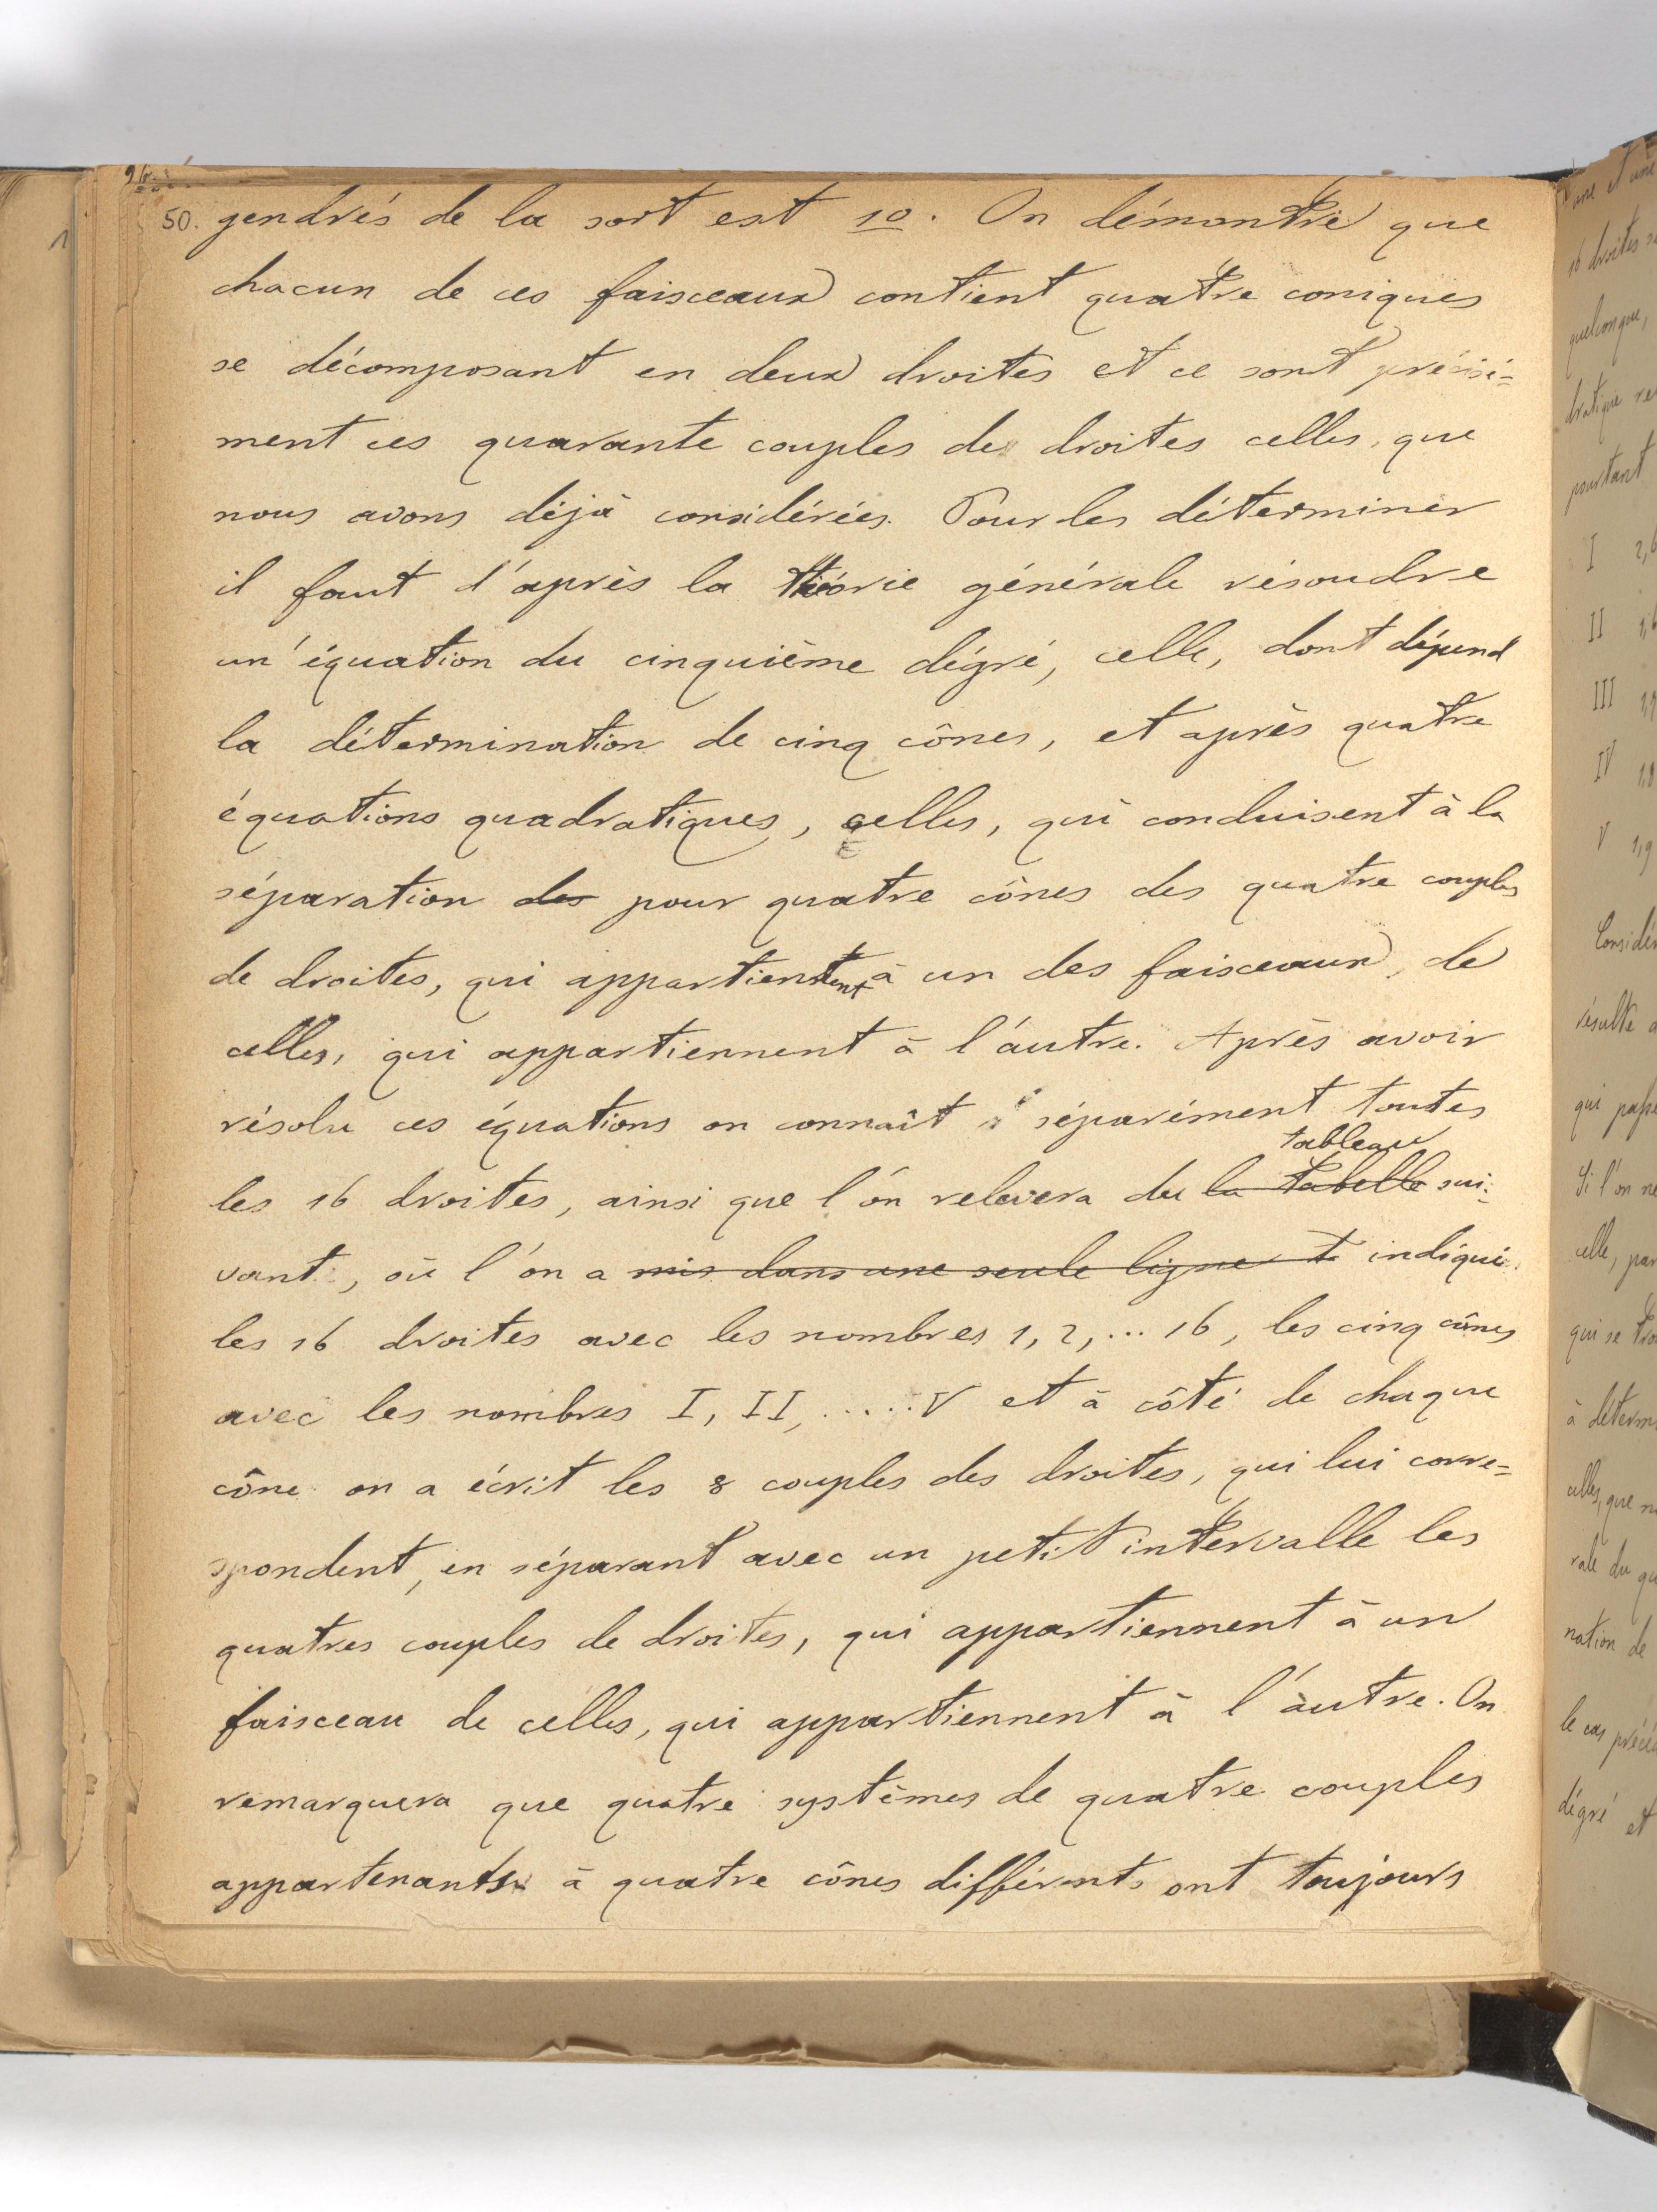 50. gendrés de la sort est 10. On démontre que
chacun de ces faisceaux contient quatre coniques
se décomposant en deux droites et ce sont précisé=
ment ces quarante couples de droites celles, que
nous avons déjà considérées. Pour les déterminer
il faut d'après la théorie générale résoudre
un' équation du cinquième dégré, celle, dont dépend
la détermination de cinq cônes, et après quatre
équations quadratiques, celles, qui conduisent à la
séparation des pour quatre cônes des quatre couples
de droites, qui appartiennent à un des faisceaux, de
celles, qui appartiennent à l'autre. Après avoir
résolu ces équations on connaît séparément toutes
tableau
les 16 droites, ainsi que l'on relevera du la tabelle sui-
vant, où l'on a mis dans une seule ligne t indiqué
les 16 droites avec les nombres 1, 2, ... 16, les cinq cônes
avec les nombres I, II, ..... V et à côté de chaque
cône on a écrit les 8 couples des droites, qui lui corre=
spondent, en séparant avec un petit intervalle les
quatres couples de droites, qui appartiennent à un
faisceau de celles, qui appartiennent à l'autre. On
remarquera que quatre systèmes de quatre couples
appartenants à quatre cônes différents ont toujours
1
I
II
III
IV
V
pourtant
nation de
dégré et